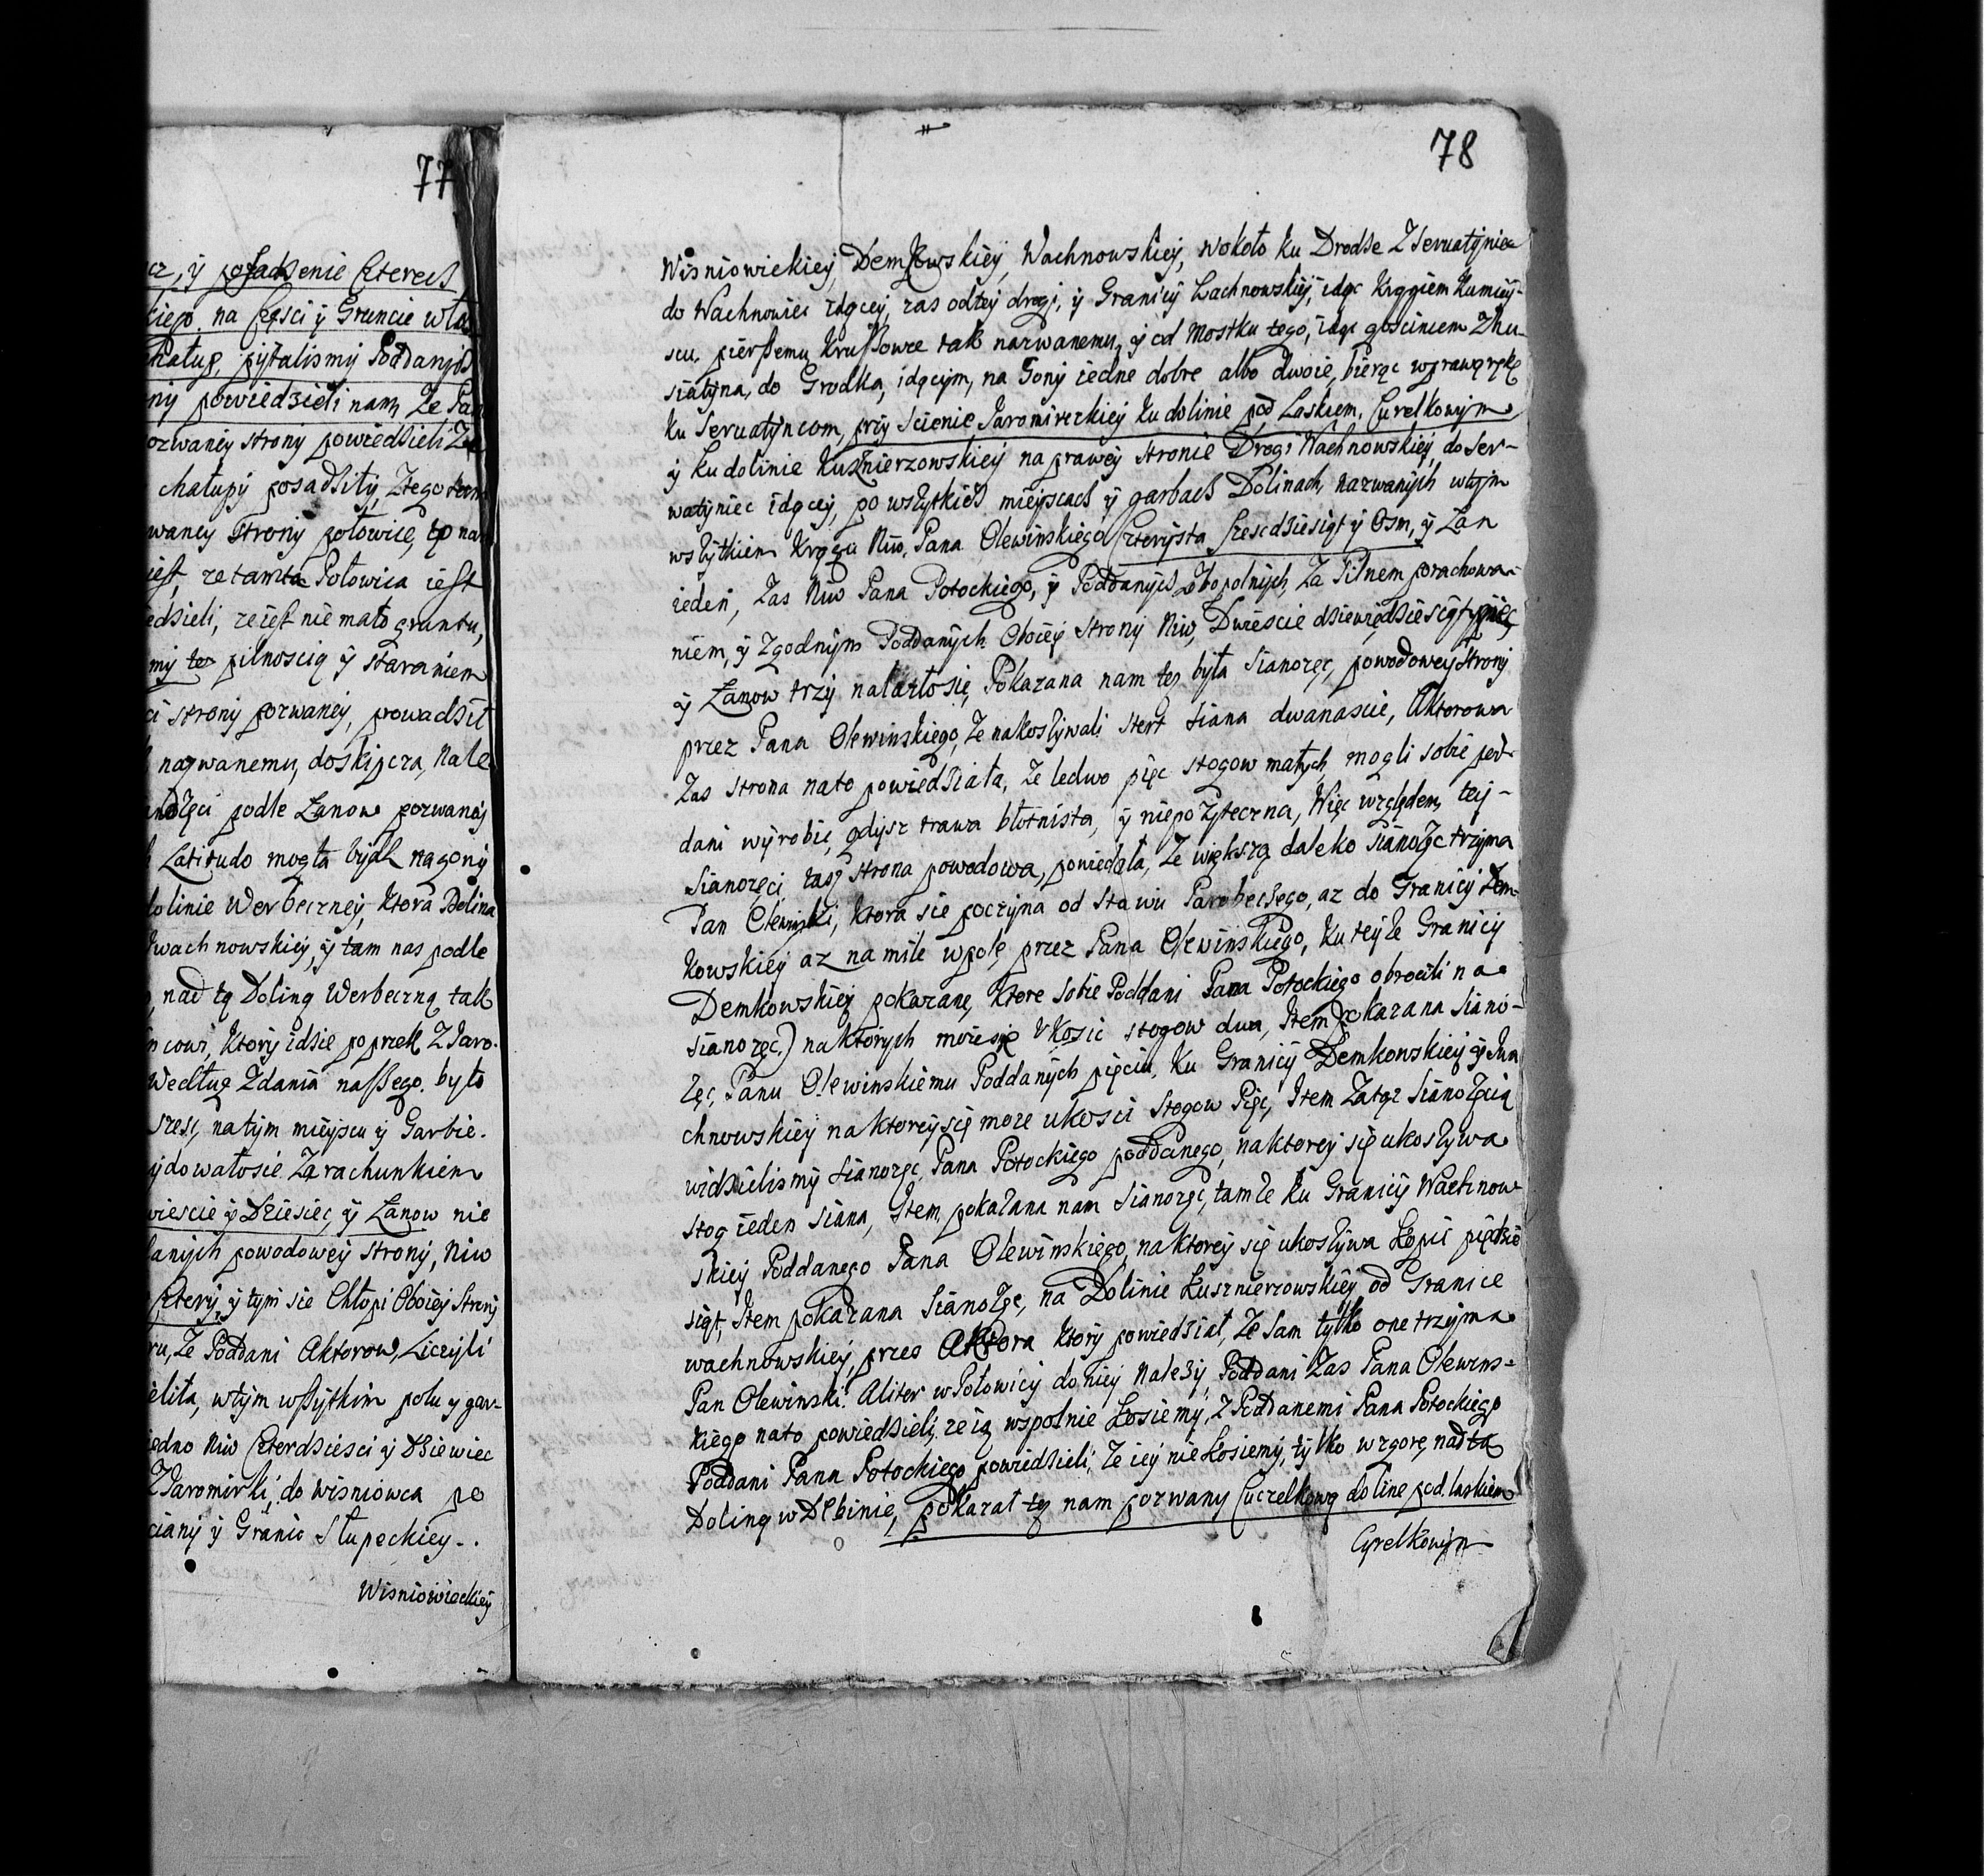 77
cz, ÿ posadzenie Czterech
kiego na Częsci ÿ Gruncie wła
chałup, pÿtalismÿ Poddanÿch
nÿ powiedzieli nam, Ze Pan
pozwaneÿ stronÿ powiedzieli Ze
chałupÿ posadziłÿ, Ztego
waneÿ Stronÿ połowicę, to na
iest, ze tamta Połowica iest
edzieli, ze iest nie mało gruntu,
mÿ tez pilnoscią ÿ staraniem
ci stronÿ pozwaneÿ, prowadził
nazwanemu, do Nale
podle Łanow pozwaneÿ
Latitudo mogła bÿdz na gonÿ
dolinie Werbeczneÿ, Ktora Dolina
Wachnowskieÿ, ÿ tam nas podle
nad tą Doliną Werbeczną tak
incowi, Ktorÿ idzie poprzek Z Jaro-
Według Zdania naszego. było
szesc, na tÿm mieÿscu ÿ Garbie.
ÿdowało sie Za rachunkiem
wiescie ÿ Dziesiec, ÿ Łanow nie
danÿch powodoweÿ stronÿ, Niw
Czterÿ, ÿ tÿm sie Chłopi Oboieÿ Stronÿ
ru, Ze Poddani Aktorow, Liczÿli
ielita, w tÿm wszÿtkim polu ÿ gar-
iedno Niw Czterdziesci ÿ Dziewiec
Z Jaromirki, do Wisniowca po
cianÿ ÿ Granic Słupeckieÿ.
Wisniowieckieÿ
78
Wisniowickieÿ, Demkowskieÿ, Wachnowskieÿ, wokoło ku Drodze Z Serwatÿniec
do Wachnowiec idąceÿ, zas od teÿ drogi, ÿ Granicÿ Lachnowskieÿ, idąc Krągiem Ku mieÿ-
scu, pierszemu Kruszowce tak nazwanemu, ÿ od Mostku tego, idąc goscincem Z hu-
siatÿna, do Grodka, idącÿm, na Gonÿ iedne dobre albo dwoie, bierąc w prawą rękę
ku Serwatÿncom, przÿ Scienie Jaromireckieÿ ku dolinie pod Laskiem, Curelkowÿm
ÿ ku dolinie Kusznierzowskieÿ na praweÿ stronie Drogi Wachnowskieÿ, do Ser-
watÿniec idąceÿ, po wszÿtkich mieÿscach ÿ garbach Dolinach, nazwanÿch w tÿm
wszÿtkiem Krągu Niw, Pana Olewinskiego Czterÿsta Szescdziesiąt ÿ Osm, ÿ Łan
ieden, Zas Niw Pana Potockiego, ÿ Poddanÿch Zobopolnÿch, Za Pilnem porachowa-
niem, ÿ Zgodnÿm Poddanÿch Oboieÿ Stronÿ Niw, Dwiescie dziewiędziesiąt ÿ pięc
ÿ Łanow trzÿ nalazło się, Pokazana nam tez była Sianozęc, powodoweÿ Stronÿ
przez Pana Olewinskiego, Ze nakoszÿwali stert Siana dwanascie, Aktorowa
Zas strona na to powiedziała, Ze ledwo pięc stogow małÿch, mogli sobie pod-
dani wÿrobic, gdÿsz trawa błotnista, ÿ niepozÿteczna, Więc względem teÿ-
Sianozęci zas strona powodowa, powiedała, Ze większą daleko Sianozęc trzÿma
Pan Olewinski, Ktora sie poczÿna od Stawu Parobeczego, az do Granicÿ Dem-
kowskieÿ az na mile w pole, przez Pana Olewinskiego, Ku teÿze Granicÿ
Demkowskieÿ pokazane, Ktore sobie Poddani Pana Potockiego obrocili na
Sianozęc.) na Ktorÿch może się Vkosic stogow dwa, Item pokazana Siano-
zęc, Panu Olewinskiemu Poddanÿch pięciu, Ku Granicÿ Demkowskieÿ ÿ Wa
chnowskieÿ na ktoreÿ się może ukosci stogow Pięc, Item Za tąz Sianozęcią
widzielismÿ Sianozęc, Pana Potockiego poddanego, na ktoreÿ się ukoszÿwa
stog ieden Siana, Item pokazana nam Sianozęc, tamze Ku Granicÿ Wachnow-
skieÿ Poddanego Pana Olewinskiego, na ktoreÿ się ukoszÿwa Kopic pięcdzie
siąt, Item pokazana Sianozęc, na Dolinie Kusznierzowskieÿ, od Granice
wachnowskieÿ, przes Aktora ktorÿ powiedział, Ze sam tÿlko one trzÿma
Pan Olewinski. Aliter w Połowicÿ do nieÿ Nalezÿ, Poddani Zas Pana Olewins-
kiego na to powiedzieli, ze ią wspolnie Kosiemÿ, Z Poddanemi Pana Potockiego
Poddani Pana Potockiego powiedzieli, Ze ieÿ nie kosiemÿ, tÿlko w zgorę nad tą
Doliną w Dębinie, pokazał tez nam pozwany Cuczelkową doline pod laskiem
Cyrelkowÿm